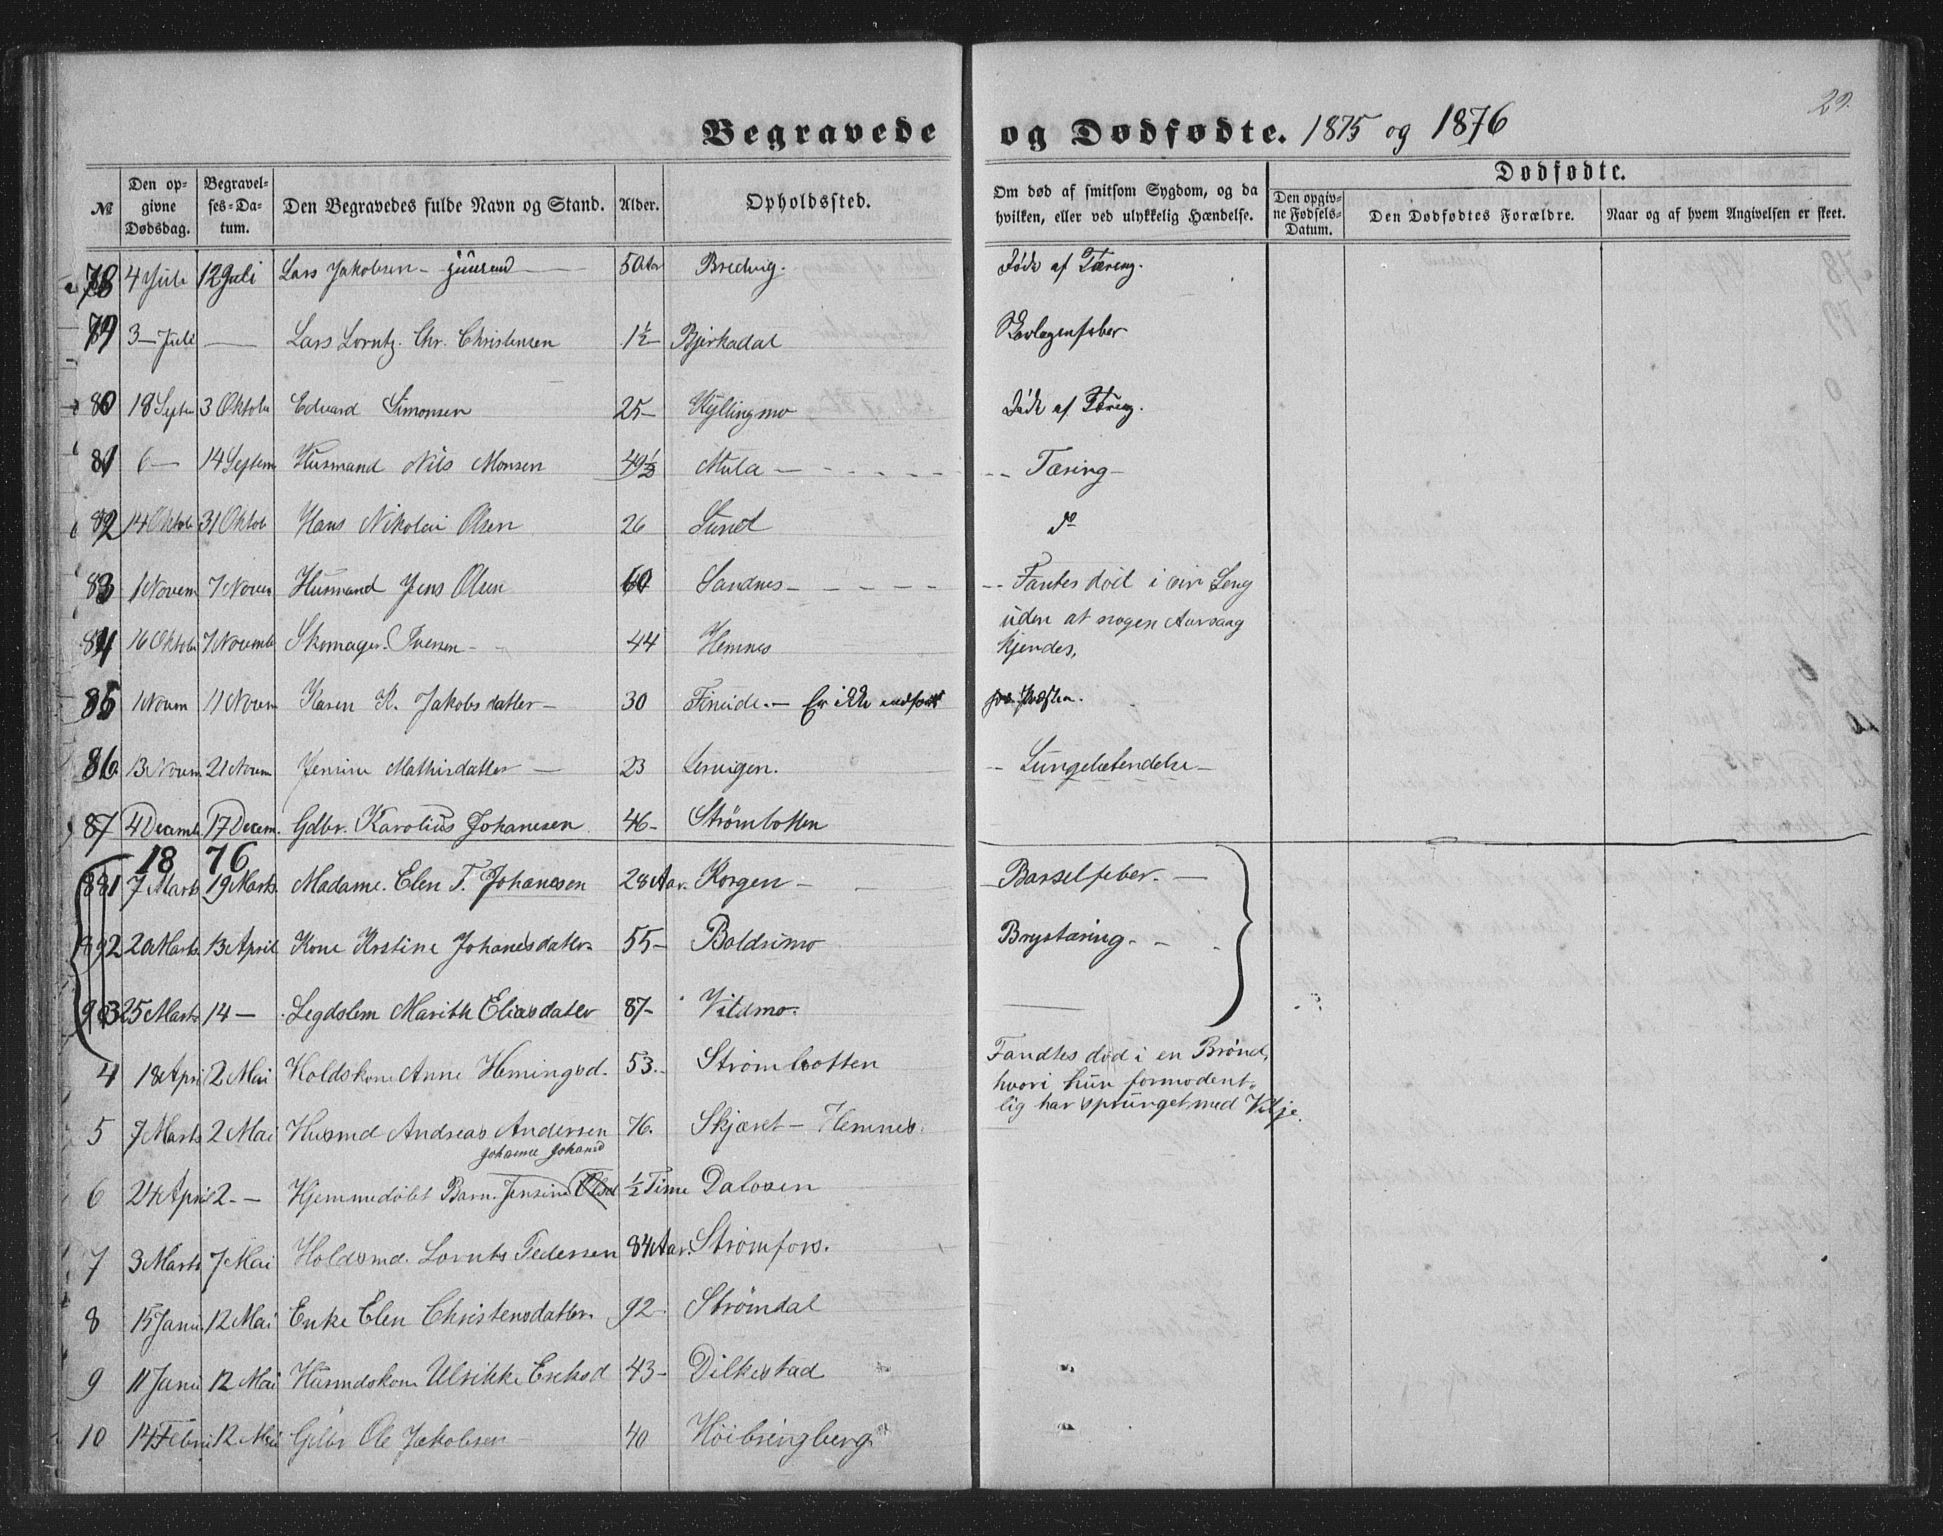 29.
Begravede og Dødfødte. 1875 og 1876
Dødfødte.
№ Den opgivne Dødsdag. Begravelses-Datum. Den Begravedes fulde Navn og Stand. Alder. Opholdssted. Om død af smitsom Sygdom, og da hvilken, eller ved ulykkelig Hændelse. Den opgivne Fødsels-Datum. Den Dødfødtes Forældre. Naar og af hvem Angivelsen er skeet.
78 4 Juli 12 Juli Lars Jakobsen 50 Aar Bredvig. Døde af Tæring.
79 3 Juli — Lars Lorntz. Chr. Christensen 1½ Bjerkadal Skarlagensfeber
80 18 Septem 3 Oktober Edvard Simonsen 25 Kyllingmo Døde af Tæring.
81 6 — 14 Septem Husmand Nils Monsen 49½ Mula Tæring
82 14 Oktob 31 Oktob Hans Nikolai Olsen 26 Sund do
83 1 Novem 7 Novem Husmand Jens Olsen 60 Sandnes Fantes död i sin Seng
uden at nogen Aarsaag
kjendes.
84 16 Oktober 7 Novemb Skomager Iversen 44 Hemnes
85 1 Novem 11 Novem Karen K. Jakobsdatter 30 Fineide. Er ikke indført
86 13 Novem 21 Novem Jensine Mathisdatter 23 Lervigen. Lungebetendelse
87 4 Decemb 17 Decem. Gdbr. Karolius Johanesen 46 Strømbotten
1876
881 7 Marts 19 Marts. Madame. Elen T. Johanesen 28 Aar. Korgen Barselfeber.
892 20 Marts 13 April Kone Kristine Johanesdatter 55 Boldermo Brystæring.
903 25 Marts 14 — Legdslem Marith Eliasdatter 87 Vildmo.
4 18 Apri 2 Mai Holdskone Anne Hemingsd. 53. Strømbotten Fandtes död i en Brönd,
hvori hun formodent-
lig har sprunget med Vilje.
5 7 Marts 2 Mai Husmd Andreas Andersen 76. Skjæret — Hemnes.
Johanne Johansd
6 24 April 2. — Hjemmedøbt Barn. Jensine Olsd ½ Time Dalosen
7 3 Marts 7 Mai Holdsmd. Lornts Pedersen 84 Aar. Strømfors.
8 15 Janu. 12 Mai Enke Elen Christensdatter. 92 Strømdal
9 11 Janu 12 Mai Husmdskone Ulrikke Eriksd 43 Dilkestad
10 14 Febru 12 Mai Gdbr Ole Jakobsen 40 Höibringberg